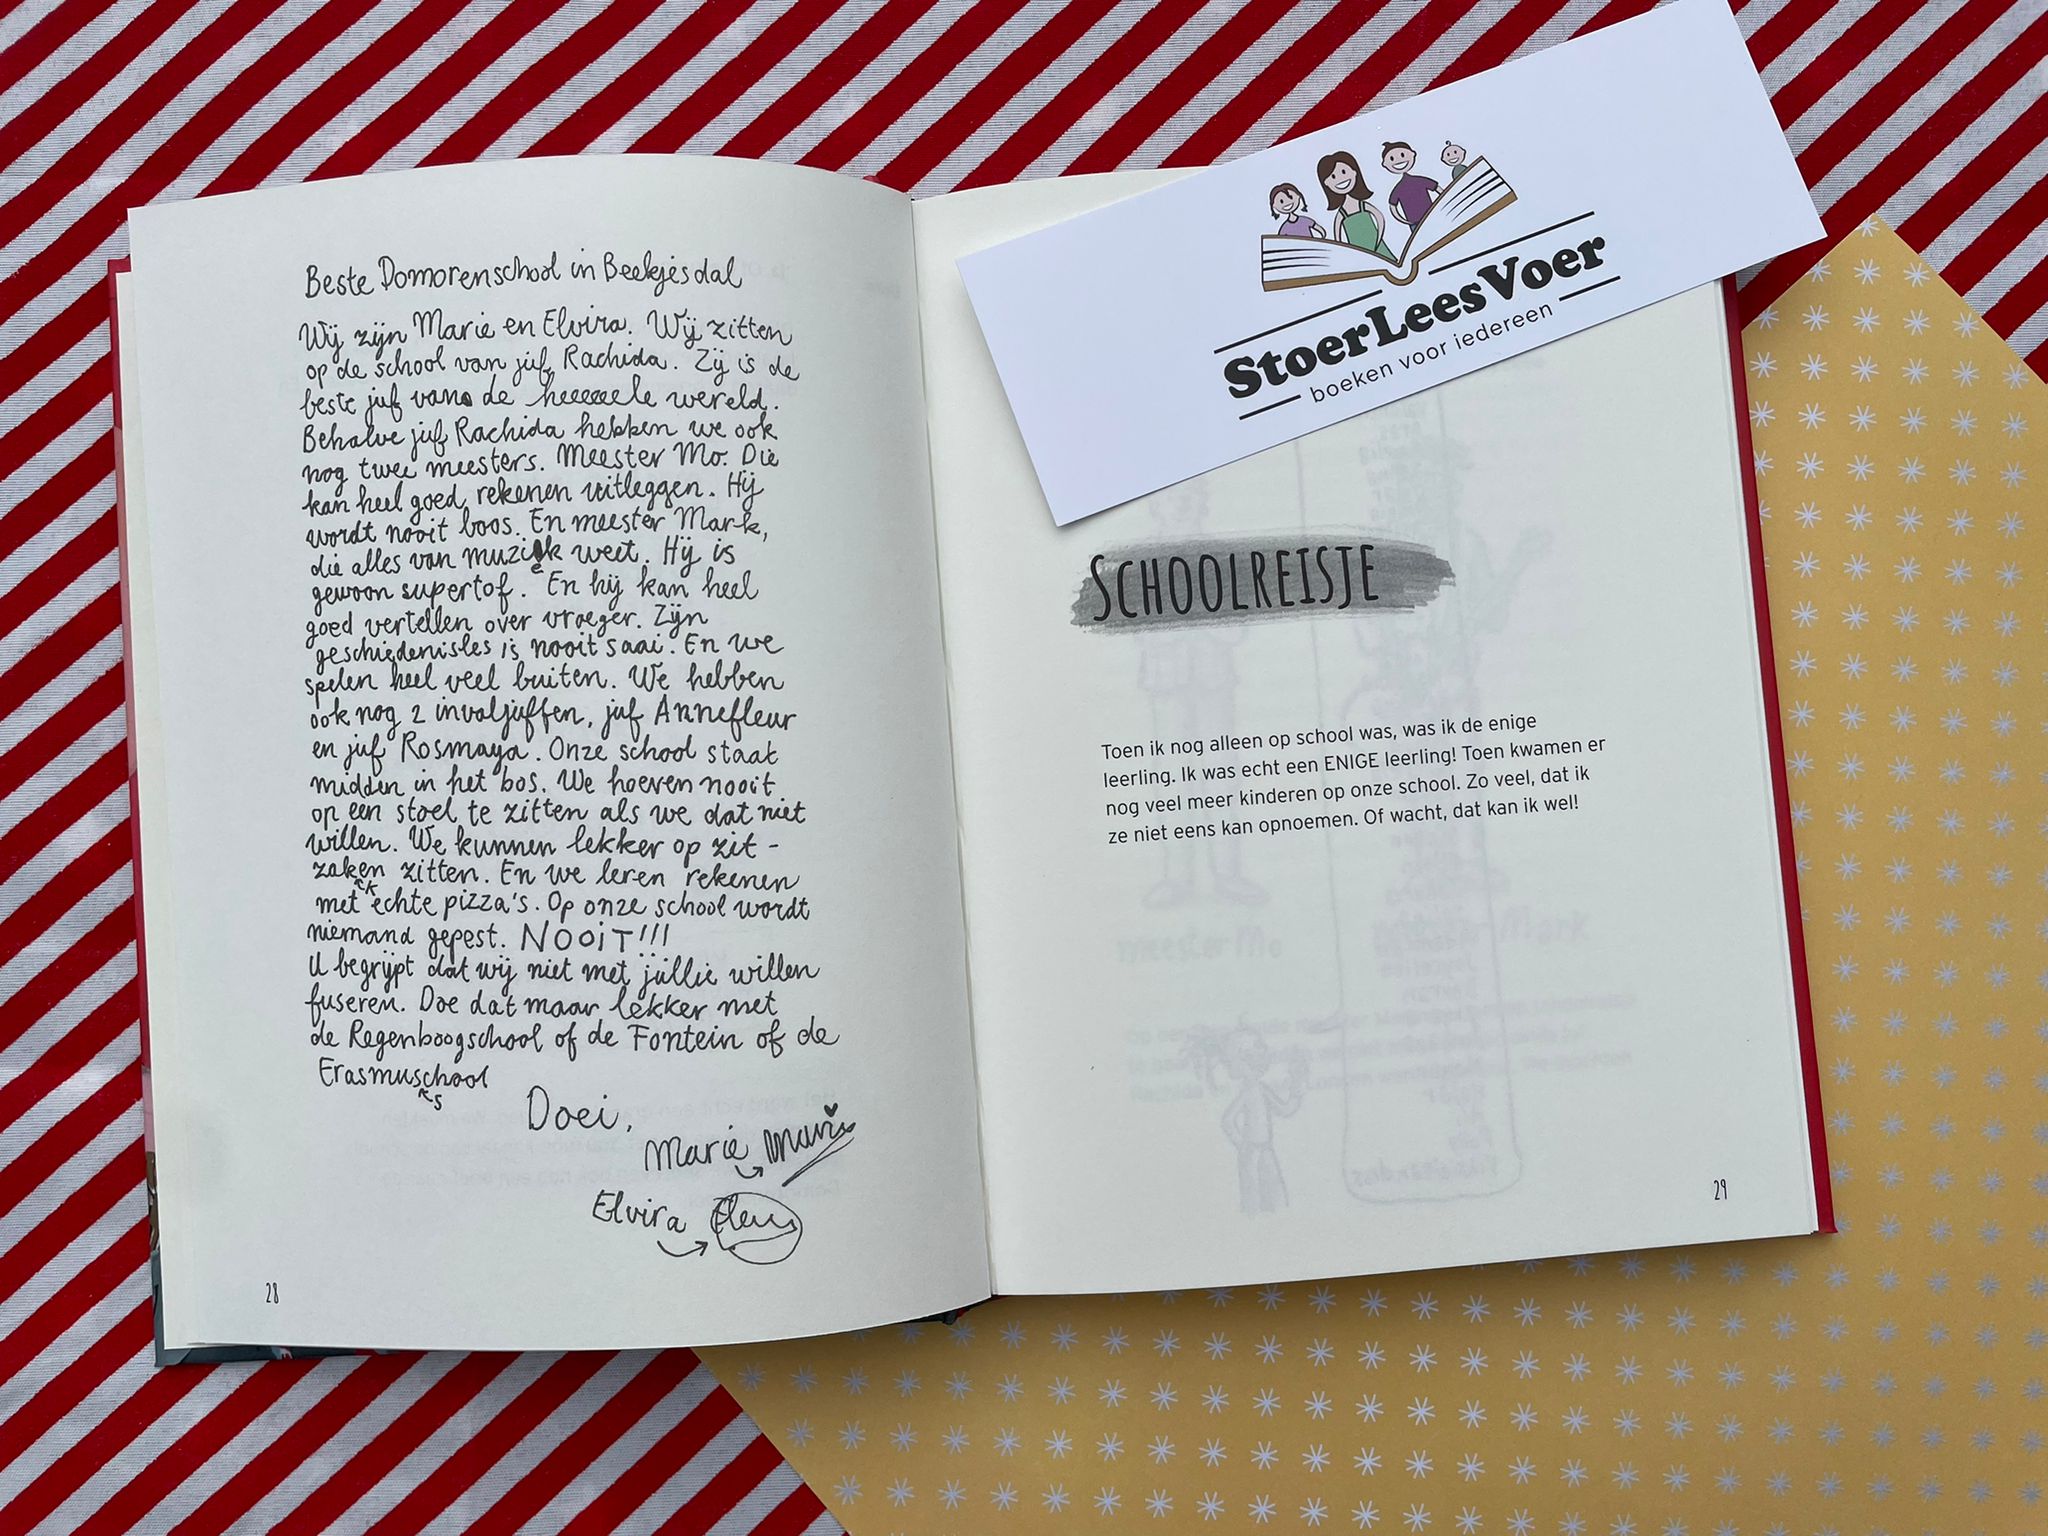 Beste Domorenschool in Beekjesdal
Wij zijn Marie en Elvira. Wij zitten
op de school van juf Rachida. Zij is de
beste juf van de heeeeele wereld.
Behalve juf Rachida hebben we ook
nog twee meesters. Meester Mo. Die
kan heel goed rekenen uitleggen. Hij
wordt nooit boos. En meester Mark,
die alles van muziek weet. Hij is
gewoon supertof. En hij kan heel
goed vertellen over vroeger. Zijn
geschiedenisles is nooit saai. En we
spelen heel veel buiten. We hebben
ook nog 2 invaljuffen, juf Annefleur
en juf Rosmaya. Onze school staat
midden in het bos. We hoeven nooit
op een stoel te zitten als we dat niet
willen. We kunnen lekker op zit-
zakken zitten. En we leren rekenen
met echte pizza's. Op onze school wordt
niemand gepest. NOOiT!!!
U begrijpt dat wij niet met jullie willen
fuseren. Doe dat maar lekker met
de Regenboogschool of de Fontein of de
Erasmusschool
Doei,
Marie Marie
Elvira
28
StoerLeesVoer
boeken voor iedereen
SCHOOLREISJE
Toen ik nog alleen op school was, was ik de enige
leerling. Ik was echt een ENIGE leerling! Toen kwamen er
nog veel meer kinderen op onze school. Zo veel, dat ik
ze niet eens kan opnoemen. Of wacht, dat kan ik wel!
29